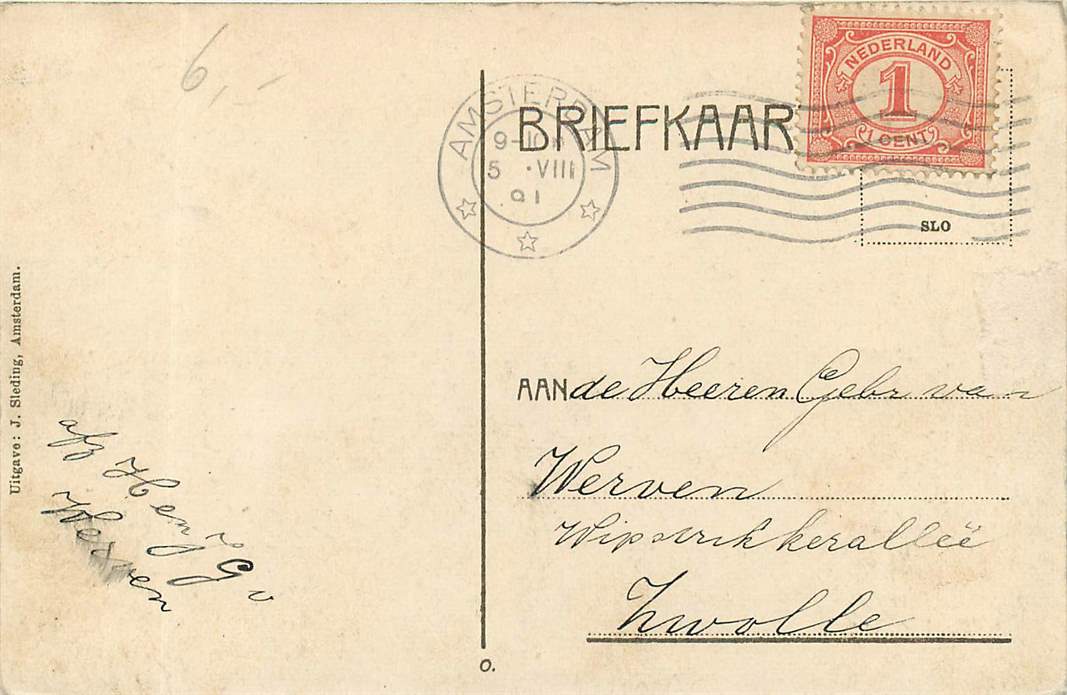 6,-
AMSTERDAM
5 .VIII
BRIEFKAAR
NEDERLAND
1
1 CENT
SLO
Uitgave: J. Sleding, Amsterdam.
AAN de Heeren Gebr van
Werven
Wipstrikkerallëe
Zwolle
afz H en J G v
Werven
O.